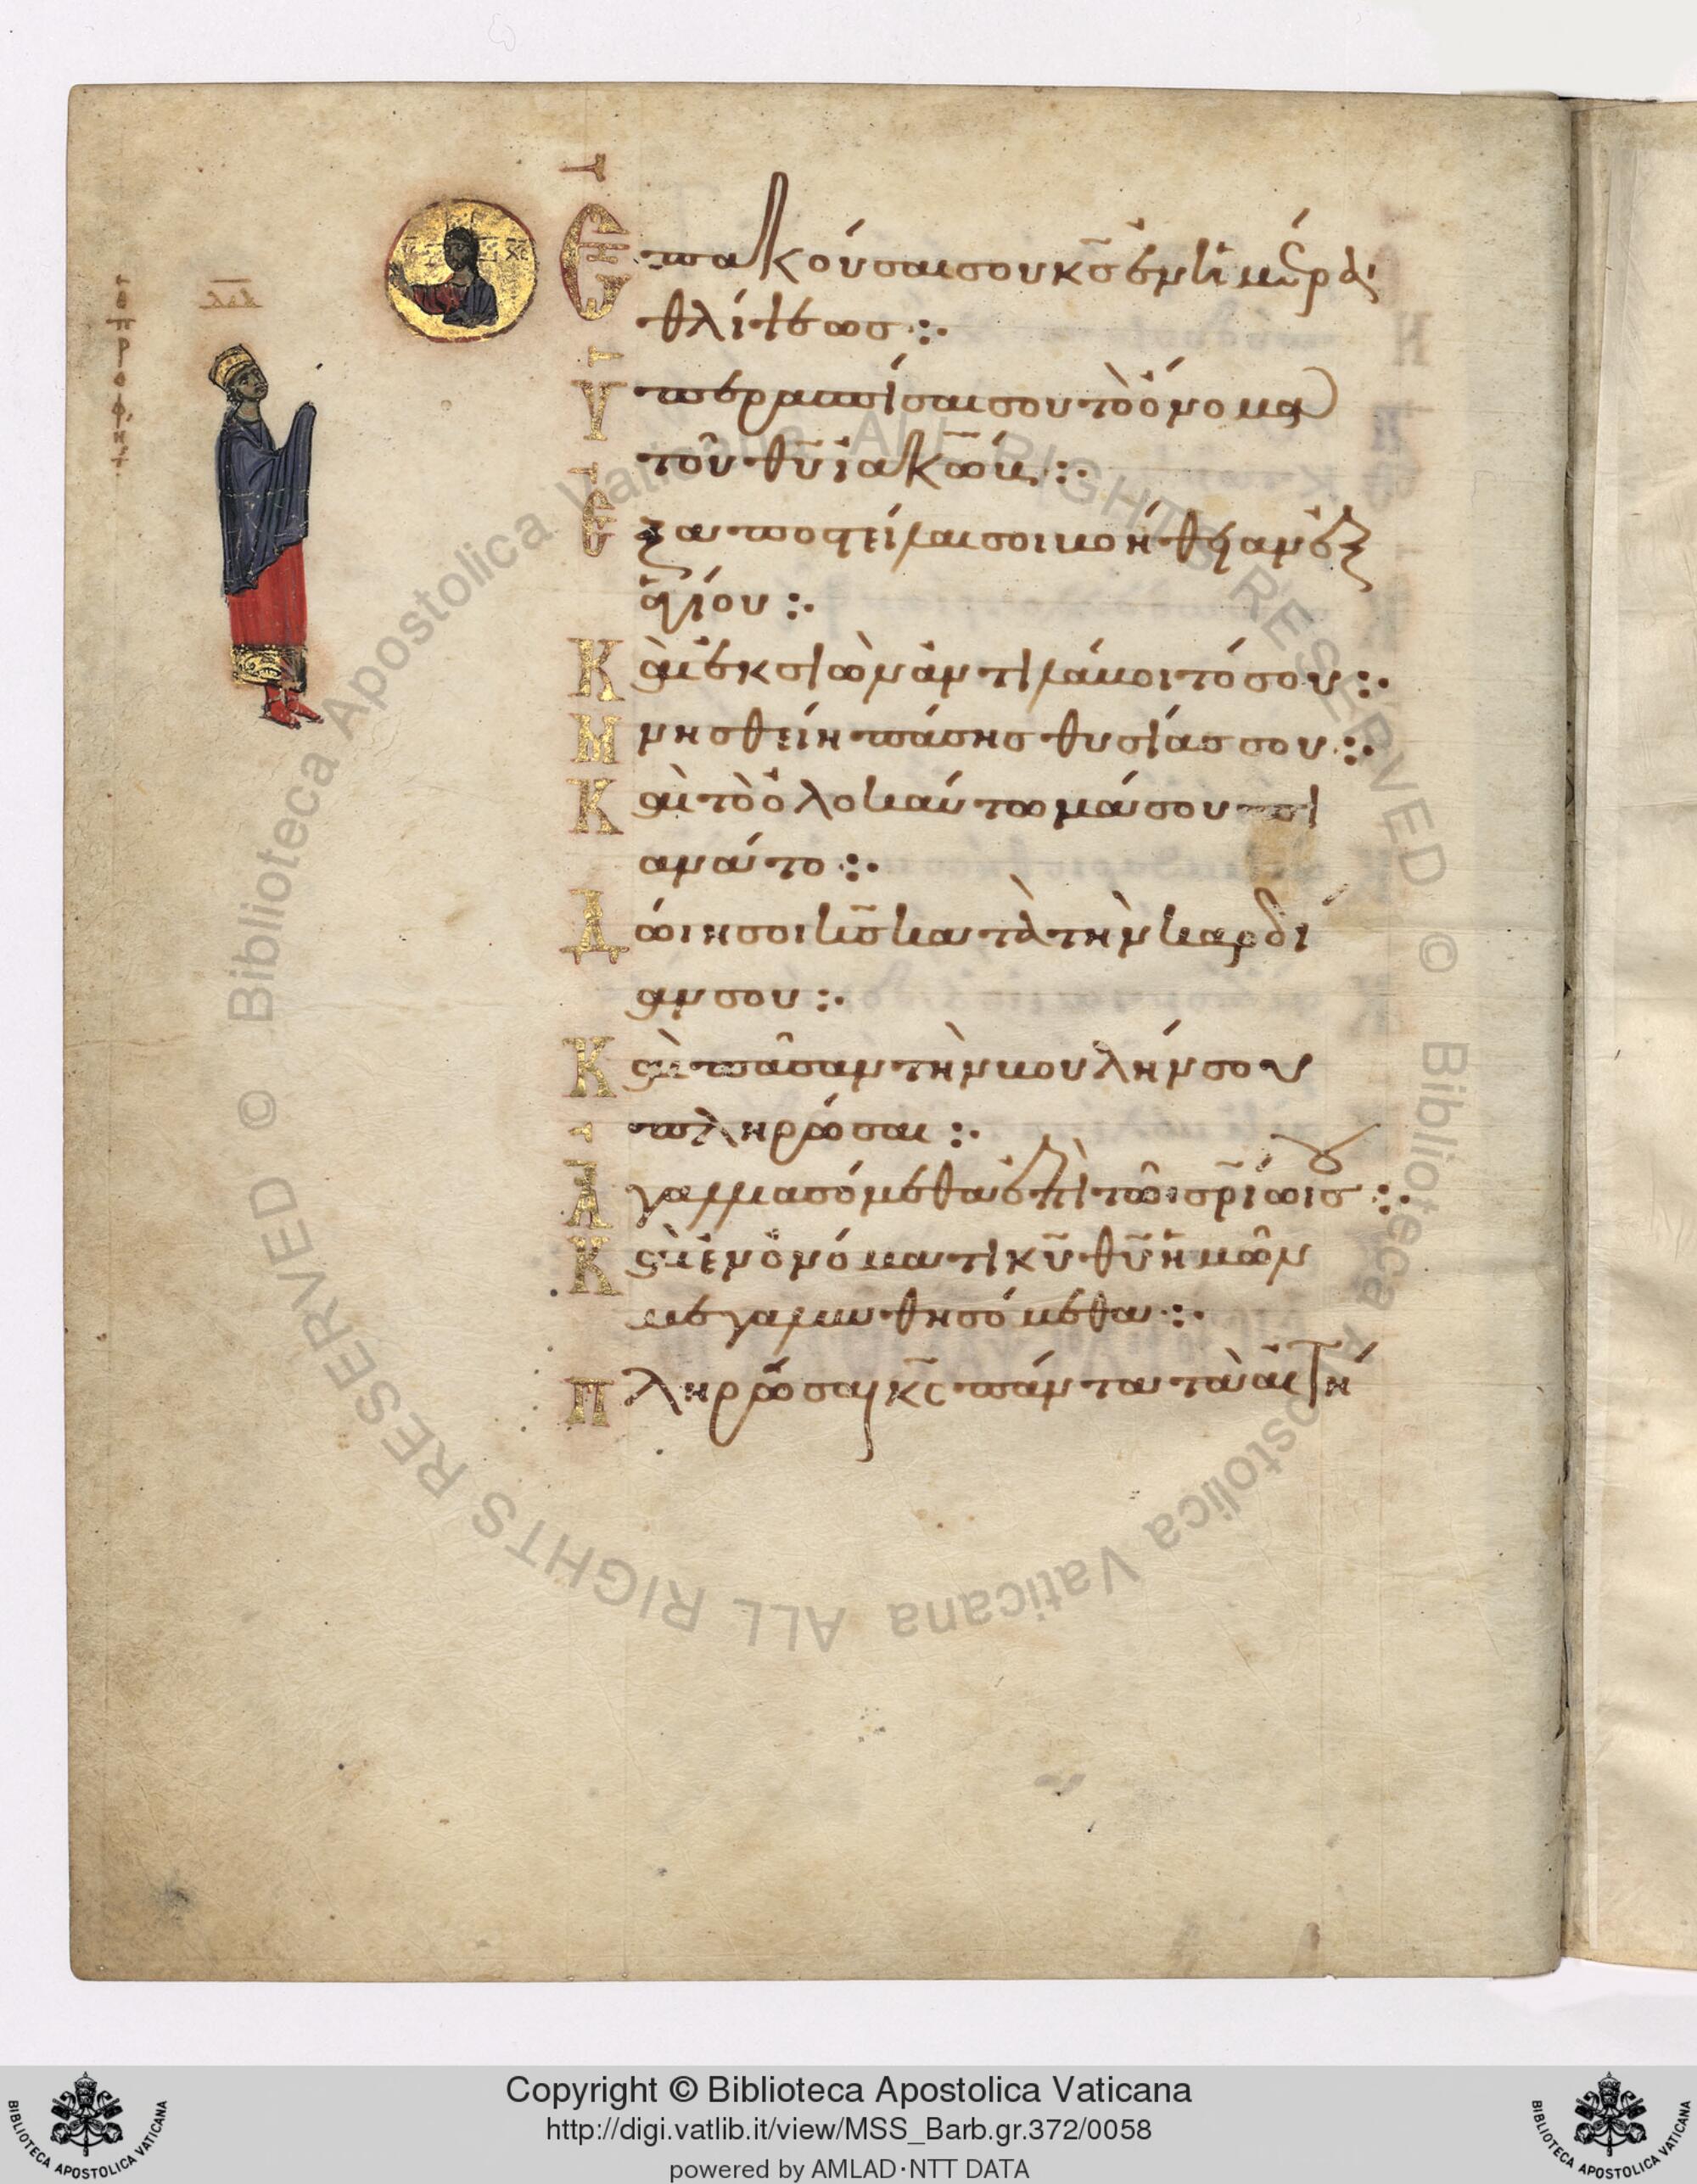 Ἐπακούσαι σου κ̅σ̅ ἐν ἡμέρα
θλίψεως :·
Ὑπερασπίσαι σου τὸ ὄνομα
τοῦ θ̅υ̅ ἰακώβ :·
Ἐξαποστείλαι σοι βοήθειαν ἐξ
ἁγίου :·
Καὶ ἐκ σιὼν ἀντιλάβοιτό σου :·
Μνησθείη πάσης θυσίας σου :·
Καὶ τὸ ὁλοκαύτωμά σου πι
ανάτο :·
Δώιη σοι κ̅σ̅ κατὰ τὴν καρδί
αν σου :·
Καὶ πᾶσαν τὴν βουλήν σου
πληρώσαι :·
Ἀγαλλιασόμεθα ἐπὶ τῶι σ̅ρ̅ί̅ωι σου :·
Καὶ ἐν ὀνόματι κ̅υ̅ θ̅υ̅ ἡμῶν
μεγαλυνθησόμεθα :·
Πληρώσαι κ̅ς̅ πάντα τὰ αἰτή
ὁ προφήτ
Ι̅C̅ Χ̅C̅
© Biblioteca Apostolica Vaticana ALL RIGHTS RESERVED © Biblioteca Apostolica Vaticana ALL RIGHTS RESERVED
Copyright © Biblioteca Apostolica Vaticana
http://digi.vatlib.it/view/MSS_Barb.gr.372/0058
powered by AMLAD·NTT DATA
BIBLIOTECA APOSTOLICA VATICANA
BIBLIOTECA APOSTOLICA VATICANA